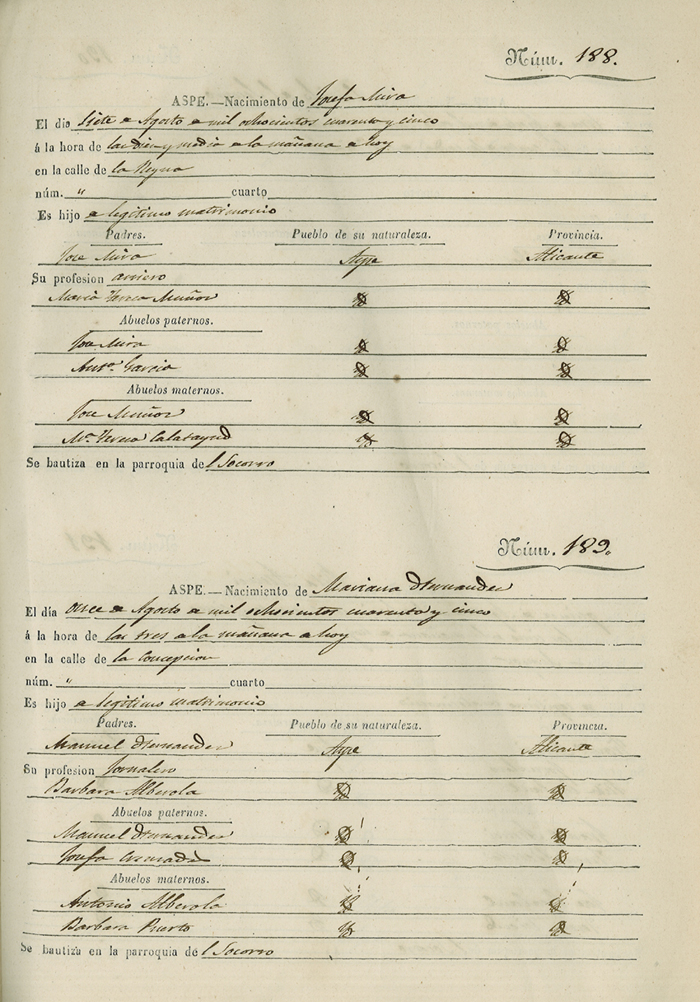 Núm. 188.
ASPE.—Nacimiento de Josefa Mira
El dia Siete de Agosto de mil ochocientos cuarenta y cinco
á la hora de las diez y media de la mañana de hoy
en la calle de la Reyna
núm. " cuarto
Es hijo de legitimo matrimonio
Padres. Pueblo de su naturaleza. Provincia.
Jose Mira Aspe Alicante
Su profesion arriero
Maria Teresa Muñoz
Abuelos paternos.
Jose Mira
Anta. Garcia
Abuelos maternos.
Jose Muñoz
Ma. Teresa Calatayud
Se bautiza en la parroquia del Socorro
Núm. 189.
ASPE.—Nacimiento de Mariana Hernandez
El día once de Agosto de mil ochocientos cuarenta y cinco
á la hora de las tres de la mañana de hoy
en la calle de la Concepcion
núm. " cuarto
Es hijo de legitimo matrimonio
Padres. Pueblo de su naturaleza. Provincia.
Manuel Hernandez Aspe Alicante
Su profesion Jornalero
Barbara Alberola
Abuelos paternos.
Manuel Hernandez
Josefa
Abuelos maternos.
Antonio Alberola
Barbara Puerto
Se bautiza en la parroquia del Socorro